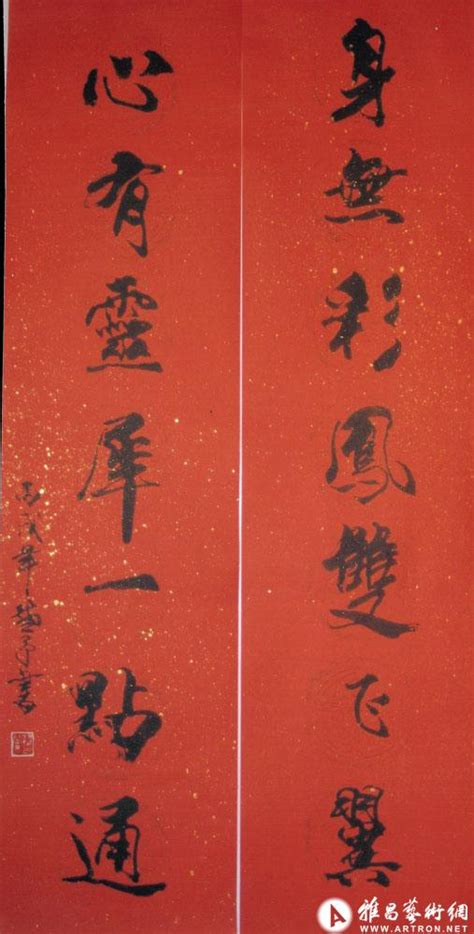 身無彩鳳雙飞翼
心有靈犀一點通
丙戌年
雅昌藝術網
WWW.ARTRON.NET